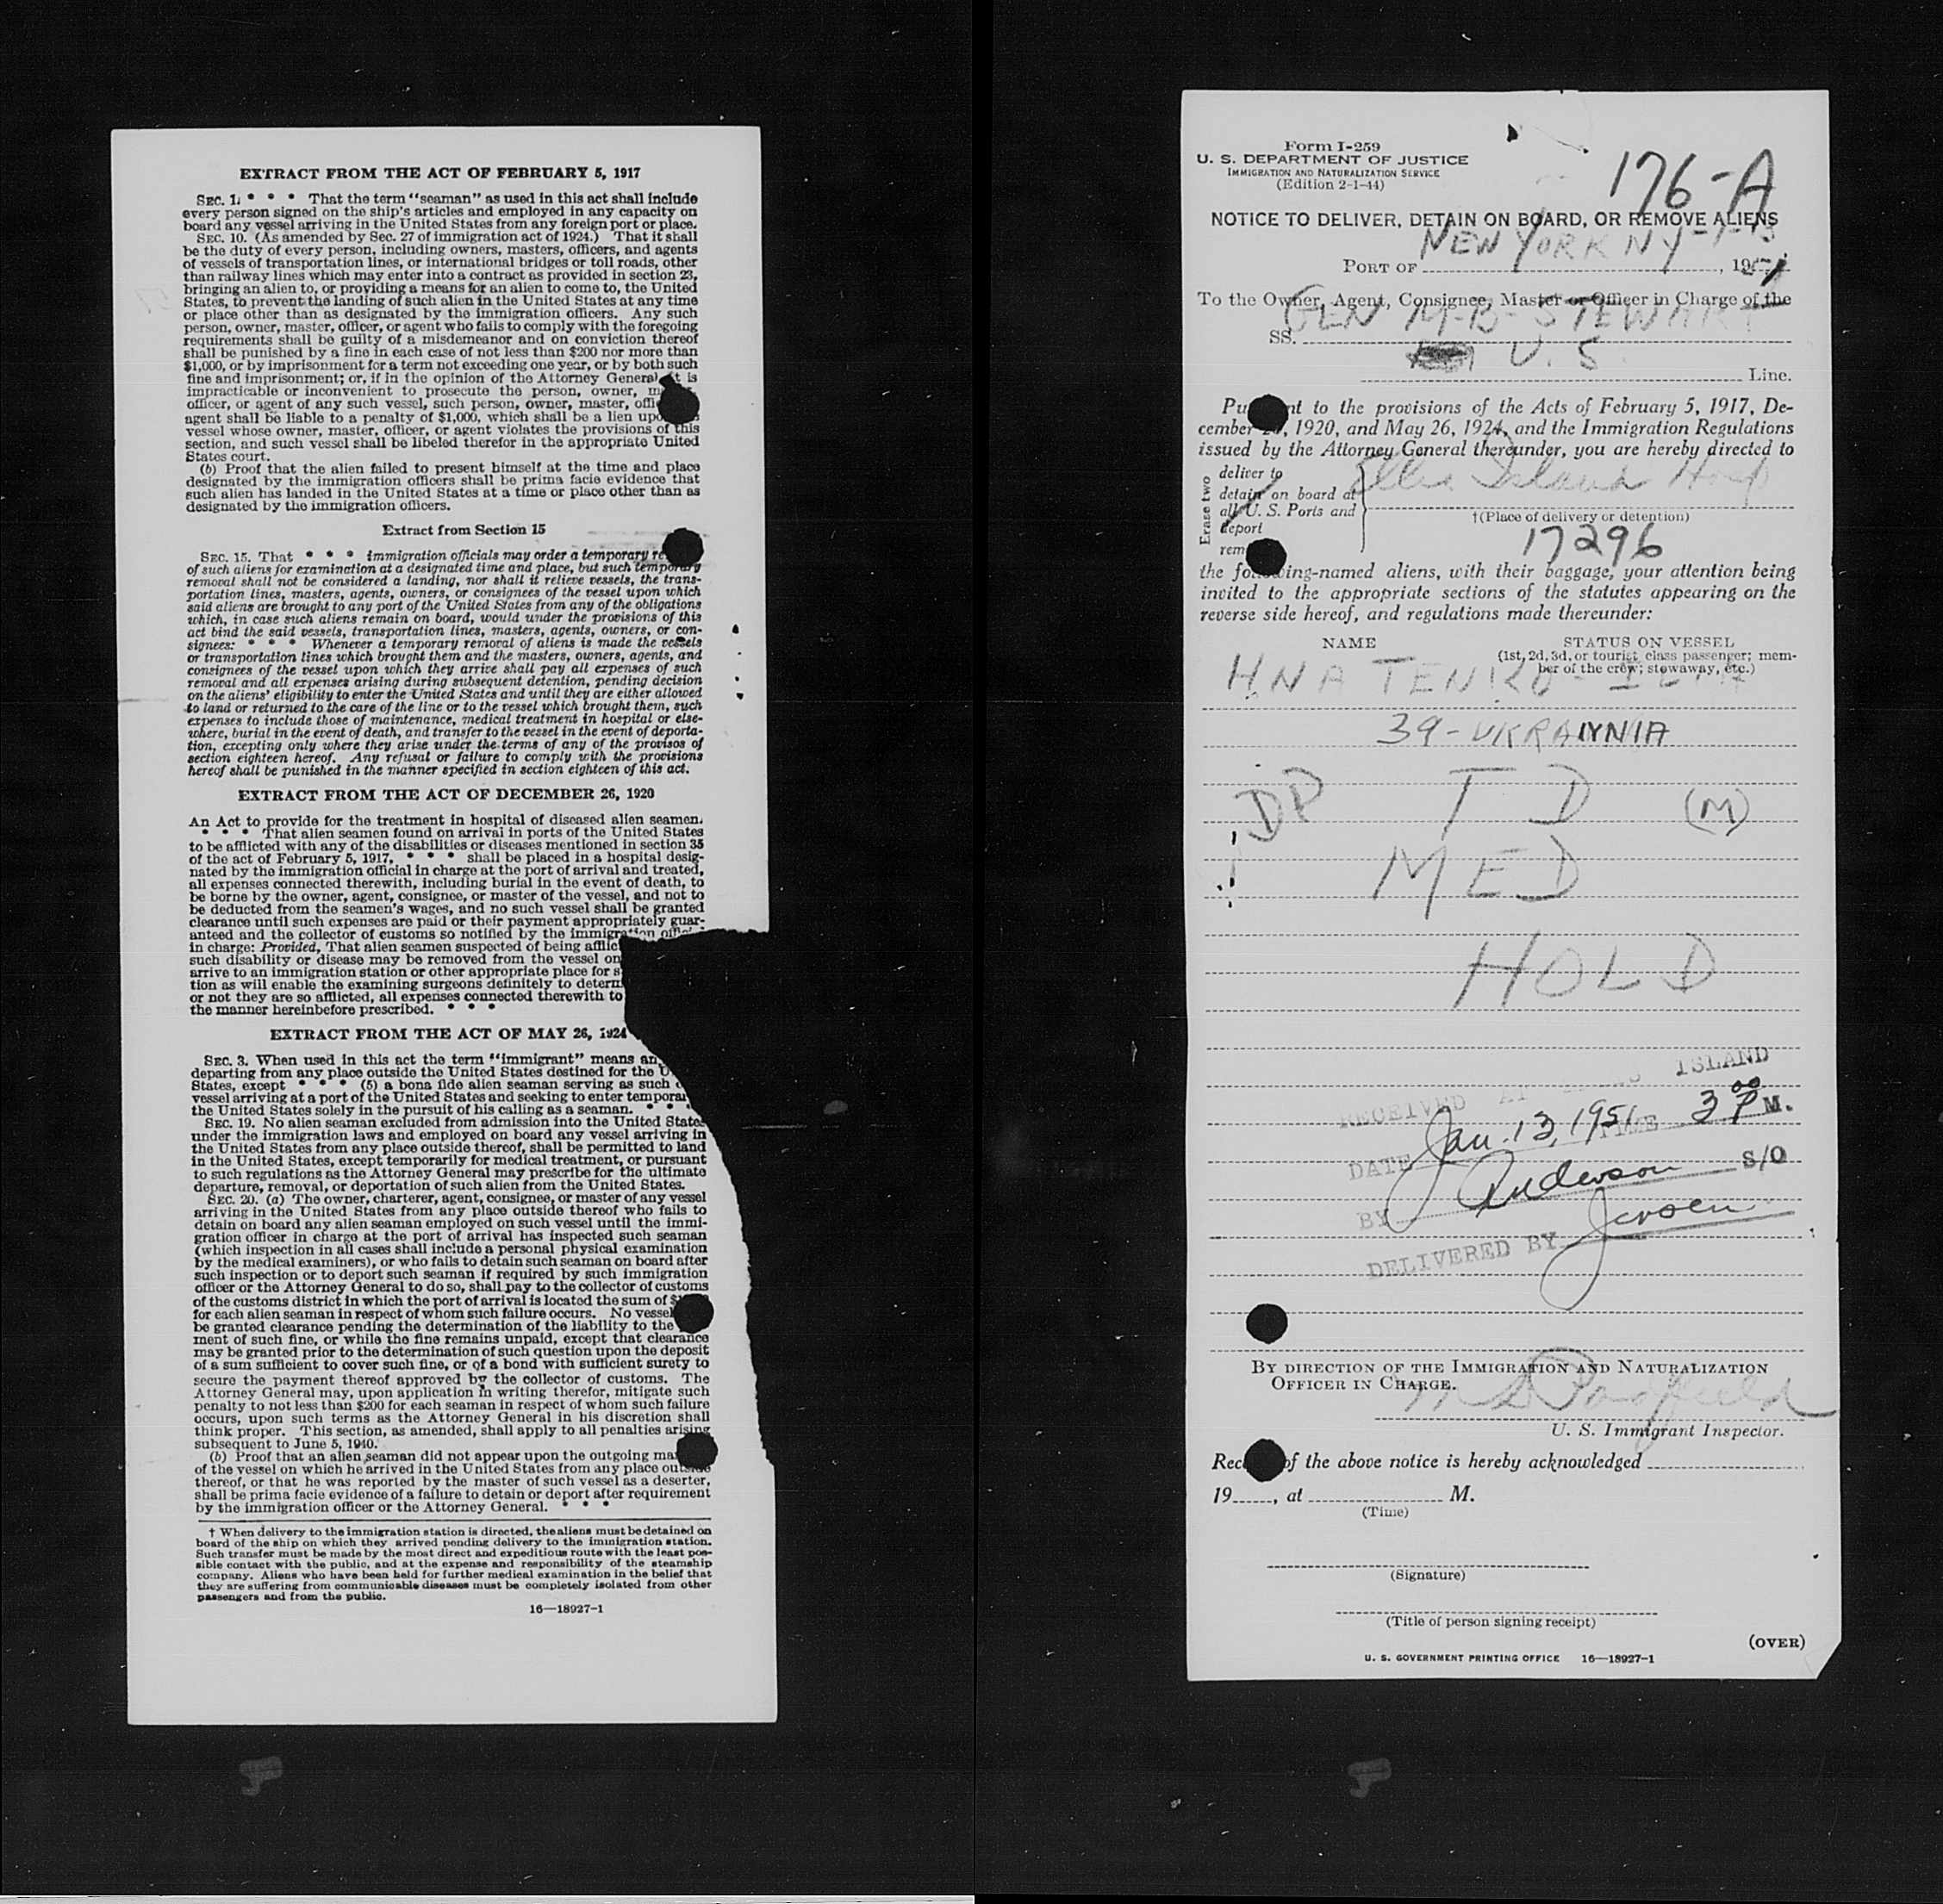 EXTRACT FROM THE ACT OF FEBRUARY 5, 1917
SEC. 1. * * * That the term "seaman" as used in this act shall include
every person signed on the ship's articles and employed in any capacity on
board any vessel arriving in the United States from any foreign port or place.
SEC. 10. (As amended by Sec. 27 of immigration act of 1924.) That it shall
be the duty of every person, including owners, masters, officers, and agents
of vessels of transportation lines, or international bridges or toll roads, other
than railway lines which may enter into a contract as provided in section 23,
bringing an alien to, or providing a means for an alien to come to, the United
States, to prevent the landing of such alien in the United States at any time
or place other than as designated by the immigration officers. Any such
person, owner, master, officer, or agent who fails to comply with the foregoing
requirements shall be guilty of a misdemeanor and on conviction thereof
shall be punished by a fine in each case of not less than $200 nor more than
$1,000, or by imprisonment for a term not exceeding one year, or by both such
fine and imprisonment; or, if in the opinion of the Attorney General it is
impracticable or inconvenient to prosecute the person, owner,
officer, or agent of any such vessel, such person, owner, master,
agent shall be liable to a penalty of $1,000, which shall be a lien
vessel whose owner, master, officer, or agent violates the provisions of this
section, and such vessel shall be libeled therefor in the appropriate United
States court.
(b) Proof that the alien failed to present himself at the time and place
designated by the immigration officers shall be prima facie evidence that
such alien has landed in the United States at a time or place other than as
designated by the immigration officers.
Extract from Section 15
SEC. 15. That * * * immigration officials may order a temporary
of such aliens for examination at a designated time and place, but such temporary
removal shall not be considered a landing, nor shall it relieve vessels, the trans-
portation lines, masters, agents, owners, or consignees of the vessel upon which
said aliens are brought to any port of the United States from any of the obligations
which, in case such aliens remain on board, would under the provisions of this
act bind the said vessels, transportation lines, masters, agents, owners, or con-
signees: * * * Whenever a temporary removal of aliens is made the vessels
or transportation lines which brought them and the masters, owners, agents, and
consignees of the vessel upon which they arrive shall pay all expenses of such
removal and all expenses arising during subsequent detention, pending decision
on the aliens' eligibility to enter the United States and until they are either allowed
to land or returned to the care of the line or to the vessel which brought them, such
expenses to include those of maintenance, medical treatment in hospital or else-
where, burial in the event of death, and transfer to the vessel in the event of deporta-
tion, excepting only where they arise under the terms of any of the provisos of
section eighteen hereof. Any refusal or failure to comply with the provisions
hereof shall be punished in the manner specified in section eighteen of this act.
EXTRACT FROM THE ACT OF DECEMBER 26, 1920
An Act to provide for the treatment in hospital of diseased alien seamen.
* * * That alien seamen found on arrival in ports of the United States
to be afflicted with any of the disabilities or diseases mentioned in section 35
of the act of February 5, 1917, * * * shall be placed in a hospital desig-
nated by the immigration official in charge at the port of arrival and treated,
all expenses connected therewith, including burial in the event of death, to
be borne by the owner, agent, consignee, or master of the vessel, and not to
be deducted from the seamen's wages, and no such vessel shall be granted
clearance until such expenses are paid or their payment appropriately guar-
anteed and the collector of customs so notified by the immigration
in charge: Provided, That alien seamen suspected of being
such disability or disease may be removed from the vessel on
arrive to an immigration station or other appropriate place for
tion as will enable the examining surgeons definitely to
or not they are so afflicted, all expenses connected therewith to
the manner hereinbefore prescribed. * * *
EXTRACT FROM THE ACT OF MAY 26, 1924
SEC. 3. When used in this act the term "immigrant" means
departing from any place outside the United States destined for the
States, except * * * (5) a bona fide alien seaman serving as such
vessel arriving at a port of the United States and seeking to enter
the United States solely in the pursuit of his calling as a seaman. * * *
SEC. 19. No alien seaman excluded from admission into the United States
under the immigration laws and employed on board any vessel arriving in
the United States from any place outside thereof, shall be permitted to land
in the United States, except temporarily for medical treatment, or pursuant
to such regulations as the Attorney General may prescribe for the ultimate
departure, removal, or deportation of such alien from the United States.
SEC. 20. (a) The owner, charterer, agent, consignee, or master of any vessel
arriving in the United States from any place outside thereof who fails to
detain on board any alien seaman employed on such vessel until the immi-
gration officer in charge at the port of arrival has inspected such seaman
(which inspection in all cases shall include a personal physical examination
by the medical examiners), or who fails to detain such seaman on board after
such inspection or to deport such seaman if required by such immigration
officer or the Attorney General to do so, shall pay to the collector of customs
of the customs district in which the port of arrival is located the sum of
for each alien seaman in respect of whom such failure occurs. No vessel
be granted clearance pending the determination of the liability to the
ment of such fine, or while the fine remains unpaid, except that clearance
may be granted prior to the determination of such question upon the deposit
of a sum sufficient to cover such fine, or of a bond with sufficient surety to
secure the payment thereof approved by the collector of customs. The
Attorney General may, upon application in writing therefor, mitigate such
penalty to not less than $200 for each seaman in respect of whom such failure
occurs, upon such terms as the Attorney General in his discretion shall
think proper. This section, as amended, shall apply to all penalties arising
subsequent to June 5, 1940.
(b) Proof that an alien seaman did not appear upon the outgoing
of the vessel on which he arrived in the United States from any place outside
thereof, or that he was reported by the master of such vessel as a deserter,
shall be prima facie evidence of a failure to detain or deport after requirement
by the immigration officer or the Attorney General. * * *
† When delivery to the immigration station is directed, the aliens must be detained on
board of the ship on which they arrived pending delivery to the immigration station.
Such transfer must be made by the most direct and expeditious route with the least pos-
sible contact with the public, and at the expense and responsibility of the steamship
company. Aliens who have been held for further medical examination in the belief that
they are suffering from communicable diseases must be completely isolated from other
passengers and from the public.
16—18927-1
Form I-259
U. S. DEPARTMENT OF JUSTICE
IMMIGRATION AND NATURALIZATION SERVICE
(Edition 2-1-44)
176-A
NOTICE TO DELIVER, DETAIN ON BOARD, OR REMOVE ALIENS
PORT OF NEW YORK NY-1-13, 1951
To the Owner, Agent, Consignee, Master or Officer in Charge of the
SS. GEN M-B-STEWART
U.S Line.
Pu nt to the provisions of the Acts of February 5, 1917, De-
cember , 1920, and May 26, 1924, and the Immigration Regulations
issued by the Attorney General thereunder, you are hereby directed to
Erase two
deliver to
detain on board at
all U. S. Ports and
deport
rem
Ellis Island Hosp
†(Place of delivery or detention)
17296
the following-named aliens, with their baggage, your attention being
invited to the appropriate sections of the statutes appearing on the
reverse side hereof, and regulations made thereunder:
NAME STATUS ON VESSEL
(1st, 2d, 3d, or tourist class passenger; mem-
ber of the crew; stowaway, etc.)
HNATENKO-
39-UKRAIYNIA
DP TD (M)
MED
HOLD
RECEIVED AT ISLAND
DATE Jan. 13, 1951 TIME 3 00 P M.
BY J Anderson S/O
DELIVERED BY Jensen
BY DIRECTION OF THE IMMIGRATION AND NATURALIZATION
OFFICER IN CHARGE.
U. S. Immigrant Inspector.
Rec of the above notice is hereby acknowledged
19 , at M.
(Time)
(Signature)
(Title of person signing receipt)
(OVER)
U. S. GOVERNMENT PRINTING OFFICE 16—18927-1